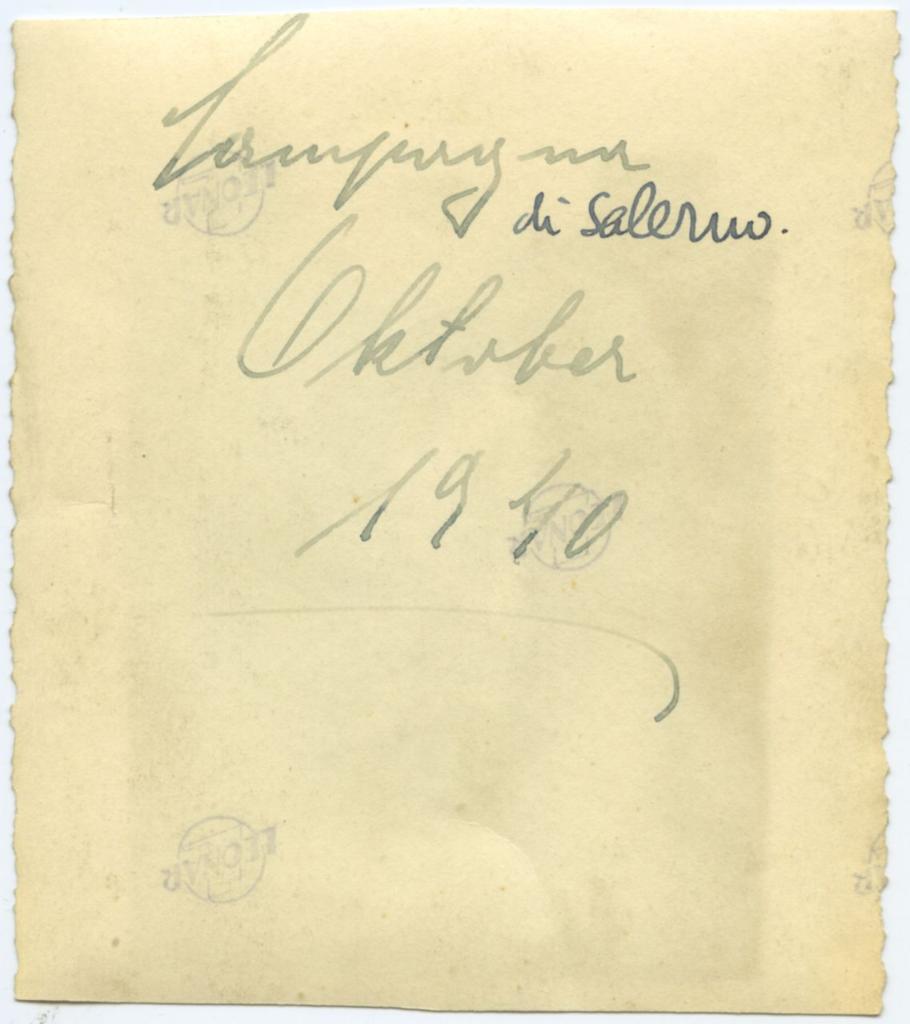 Campagna
di Salerno.
Oktober
1940
LEONAR
LEONAR
LEONAR